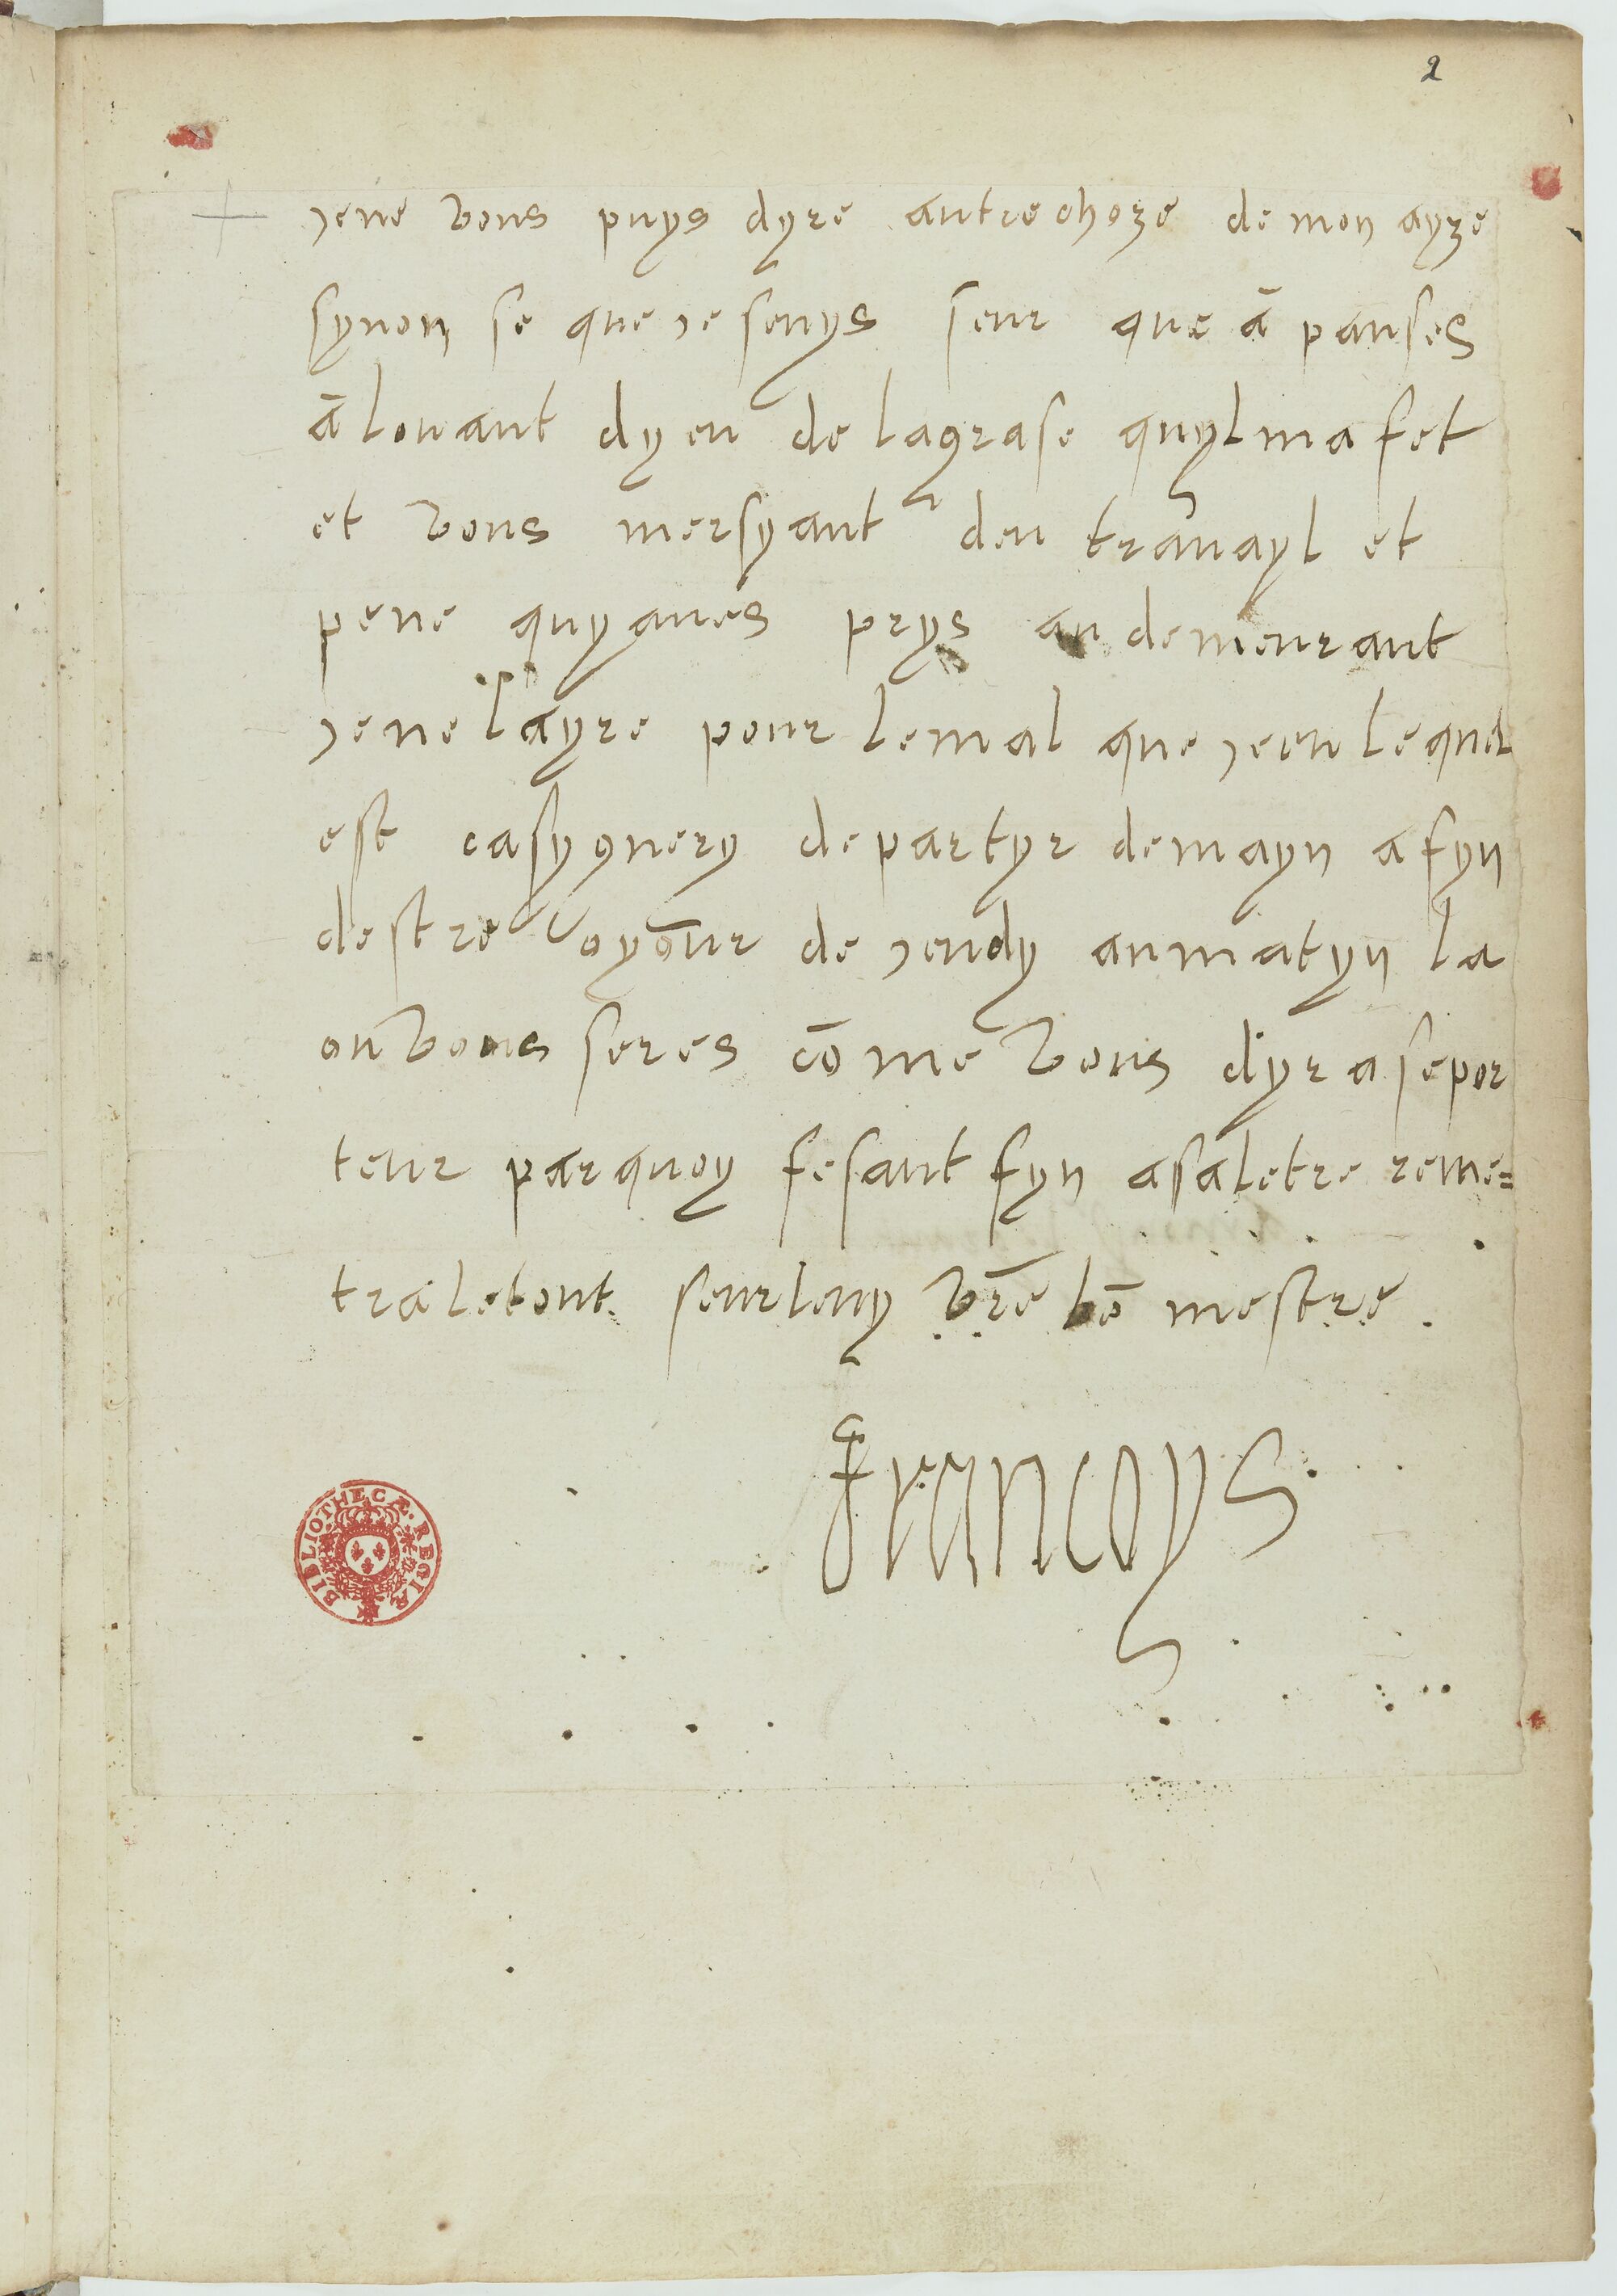 2
jene vous puys dyre autre choze de mon ayze
synon se que je seuys seur que ā panses
ā louant dyeu de lagrase quylma fet
et vous mersyant deu travayl et
pene quyaves prys au demeurant
jene layre pour lemal que jeeu lequel
est casyguery departyr demayn afyn
destre oyōur de jeudy aumatyn la
ou vous seres cōme vous dyra sepor
teur parquoy fesant fyn asaletre reme=
tra letout seurleuy vr̄e bō mestre
Francoys
BIBLIOTHECÆ REGIÆ